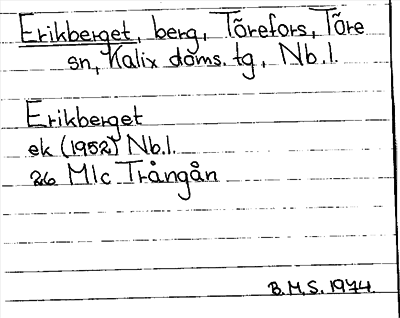 Erikberget, berg, Törefors, Töre
sn, Kalix doms. tg, Nb.l.
Erikberget
ek (1952) Nb.l.
26 M1c Trångån
B.M.S. 1974.